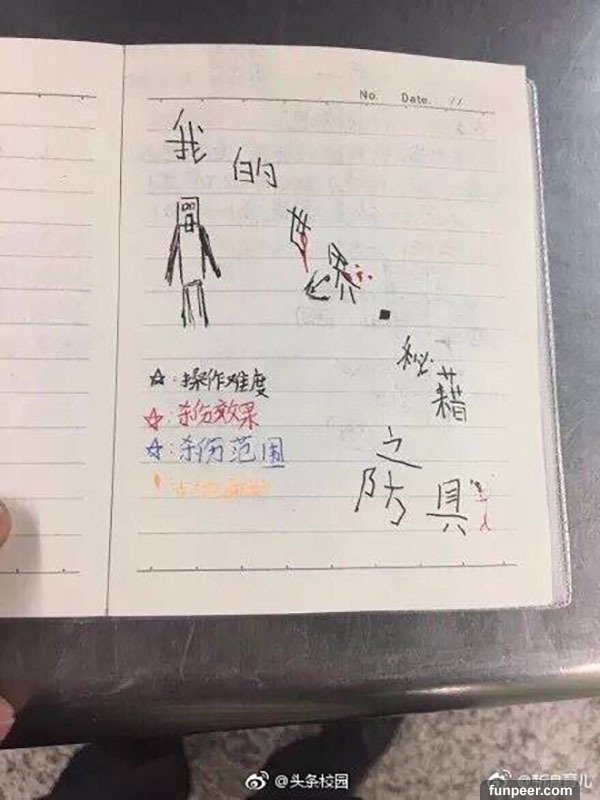 No.   Date.   / /
我的世界.
秘藉
之
防具
☆:操作难度
☆:杀伤效果
☆:杀伤范围
@头条校园
funpeer.com